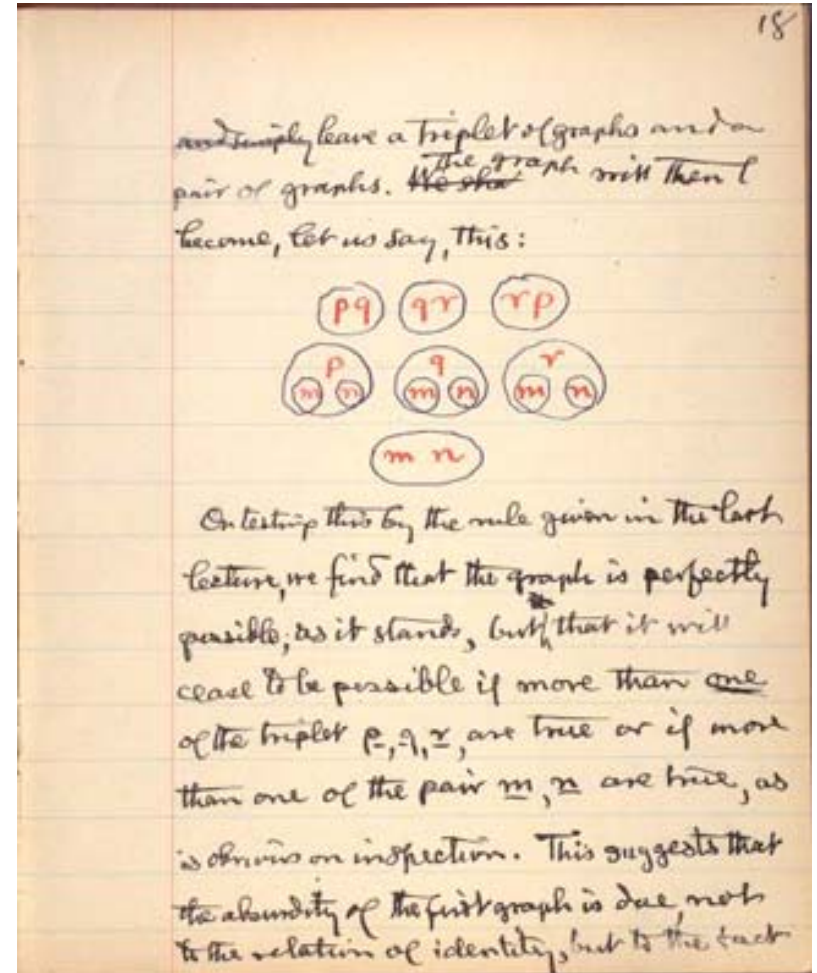 18
and simply leave a triplet of graphs and a
pair of graphs. We sha The graph will then
become, let us say, this:
pq qr rp
p q r
m n m n m n
m n
On testing this by the rule given in the last
lecture, we find that the graph is perfectly
possible, as it stands, but that it will
cease to be possible if more than one
of the triplet p, q, r, are true or if more
than one of the pair m, n are true, as
is obvious on inspection. This suggests that
the absurdity of the first graph is due, not
to the relation of identity, but to the fact